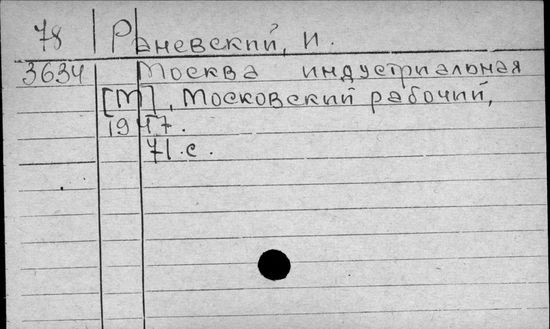 78 Раневский, И.
3634 Москва индустриальная
[М], Московский рабочий,
1947.
71.с.